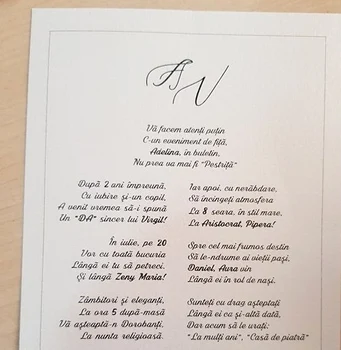 A V
Vă facem atenți puțin
C-un eveniment de fiță,
Adelina, în buletin,
Nu prea va mai fi "Pestriță"
După 2 ani împreună,
Cu iubire și-un copil,
A venit vremea să-i spună
Un "DA" sincer lui Virgil!
În iulie, pe 20
Vor cu toată bucuria
Lângă ei tu să petreci.
Și lângă Zeny Maria!
Zâmbitori și eleganți,
La ora 5 după-masă
Vă așteaptă-n Dorobanți,
La nunta religioasă.
Iar apoi, cu nerăbdare,
Să încingeți atmosfera
La 8 seara, în stil mare,
La Aristocrat, Pipera!
Spre cel mai frumos destin
Să le-ndrume ai vieții pași,
Daniel, Aura vin
Lângă ei în rol de nași.
Sunteți cu drag așteptați
Lângă ei ca și-altă dată,
Dar acum să le urați:
"La mulți ani", "Casă de piatră"